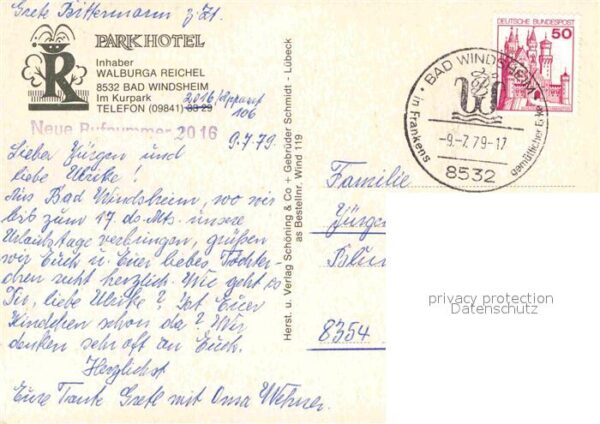 Grete Bittermann z. Zt.
PARKHOTEL
R
Inhaber
WALBURGA REICHEL
8532 BAD WINDSHEIM
Im Kurpark
TELEFON (09841) 83 29
2016/Apparat
106
Neue Rufnummer 2016
9.7.79.
Lieber Jürgen und
liebe Ulrike!
Aus Bad Windsheim, wo wir
bis zum 17. ds. Mts. unsere
Urlaubstage verbringen, grüßen
wir Euch u. Euer liebes Töchter-
chen recht herzlich. Wie geht es
Dir, liebe Ulrike? Ist Euer
Kindchen schon da? Wir
denken sehr oft an Euch.
Herzlichst
Eure Tante Gretl mit Oma Wehner.
Herst. u. Verlag Schöning & Co + Gebrüder Schmidt - Lübeck
as Bestellnr. Wind 119
DEUTSCHE BUNDESPOST
50
BAD WINDSHEIM
in Frankens gemütlicher Ecke
-9.-7.79-17
8532
Familie
Jürgen
8354
privacy protection
Datenschutz